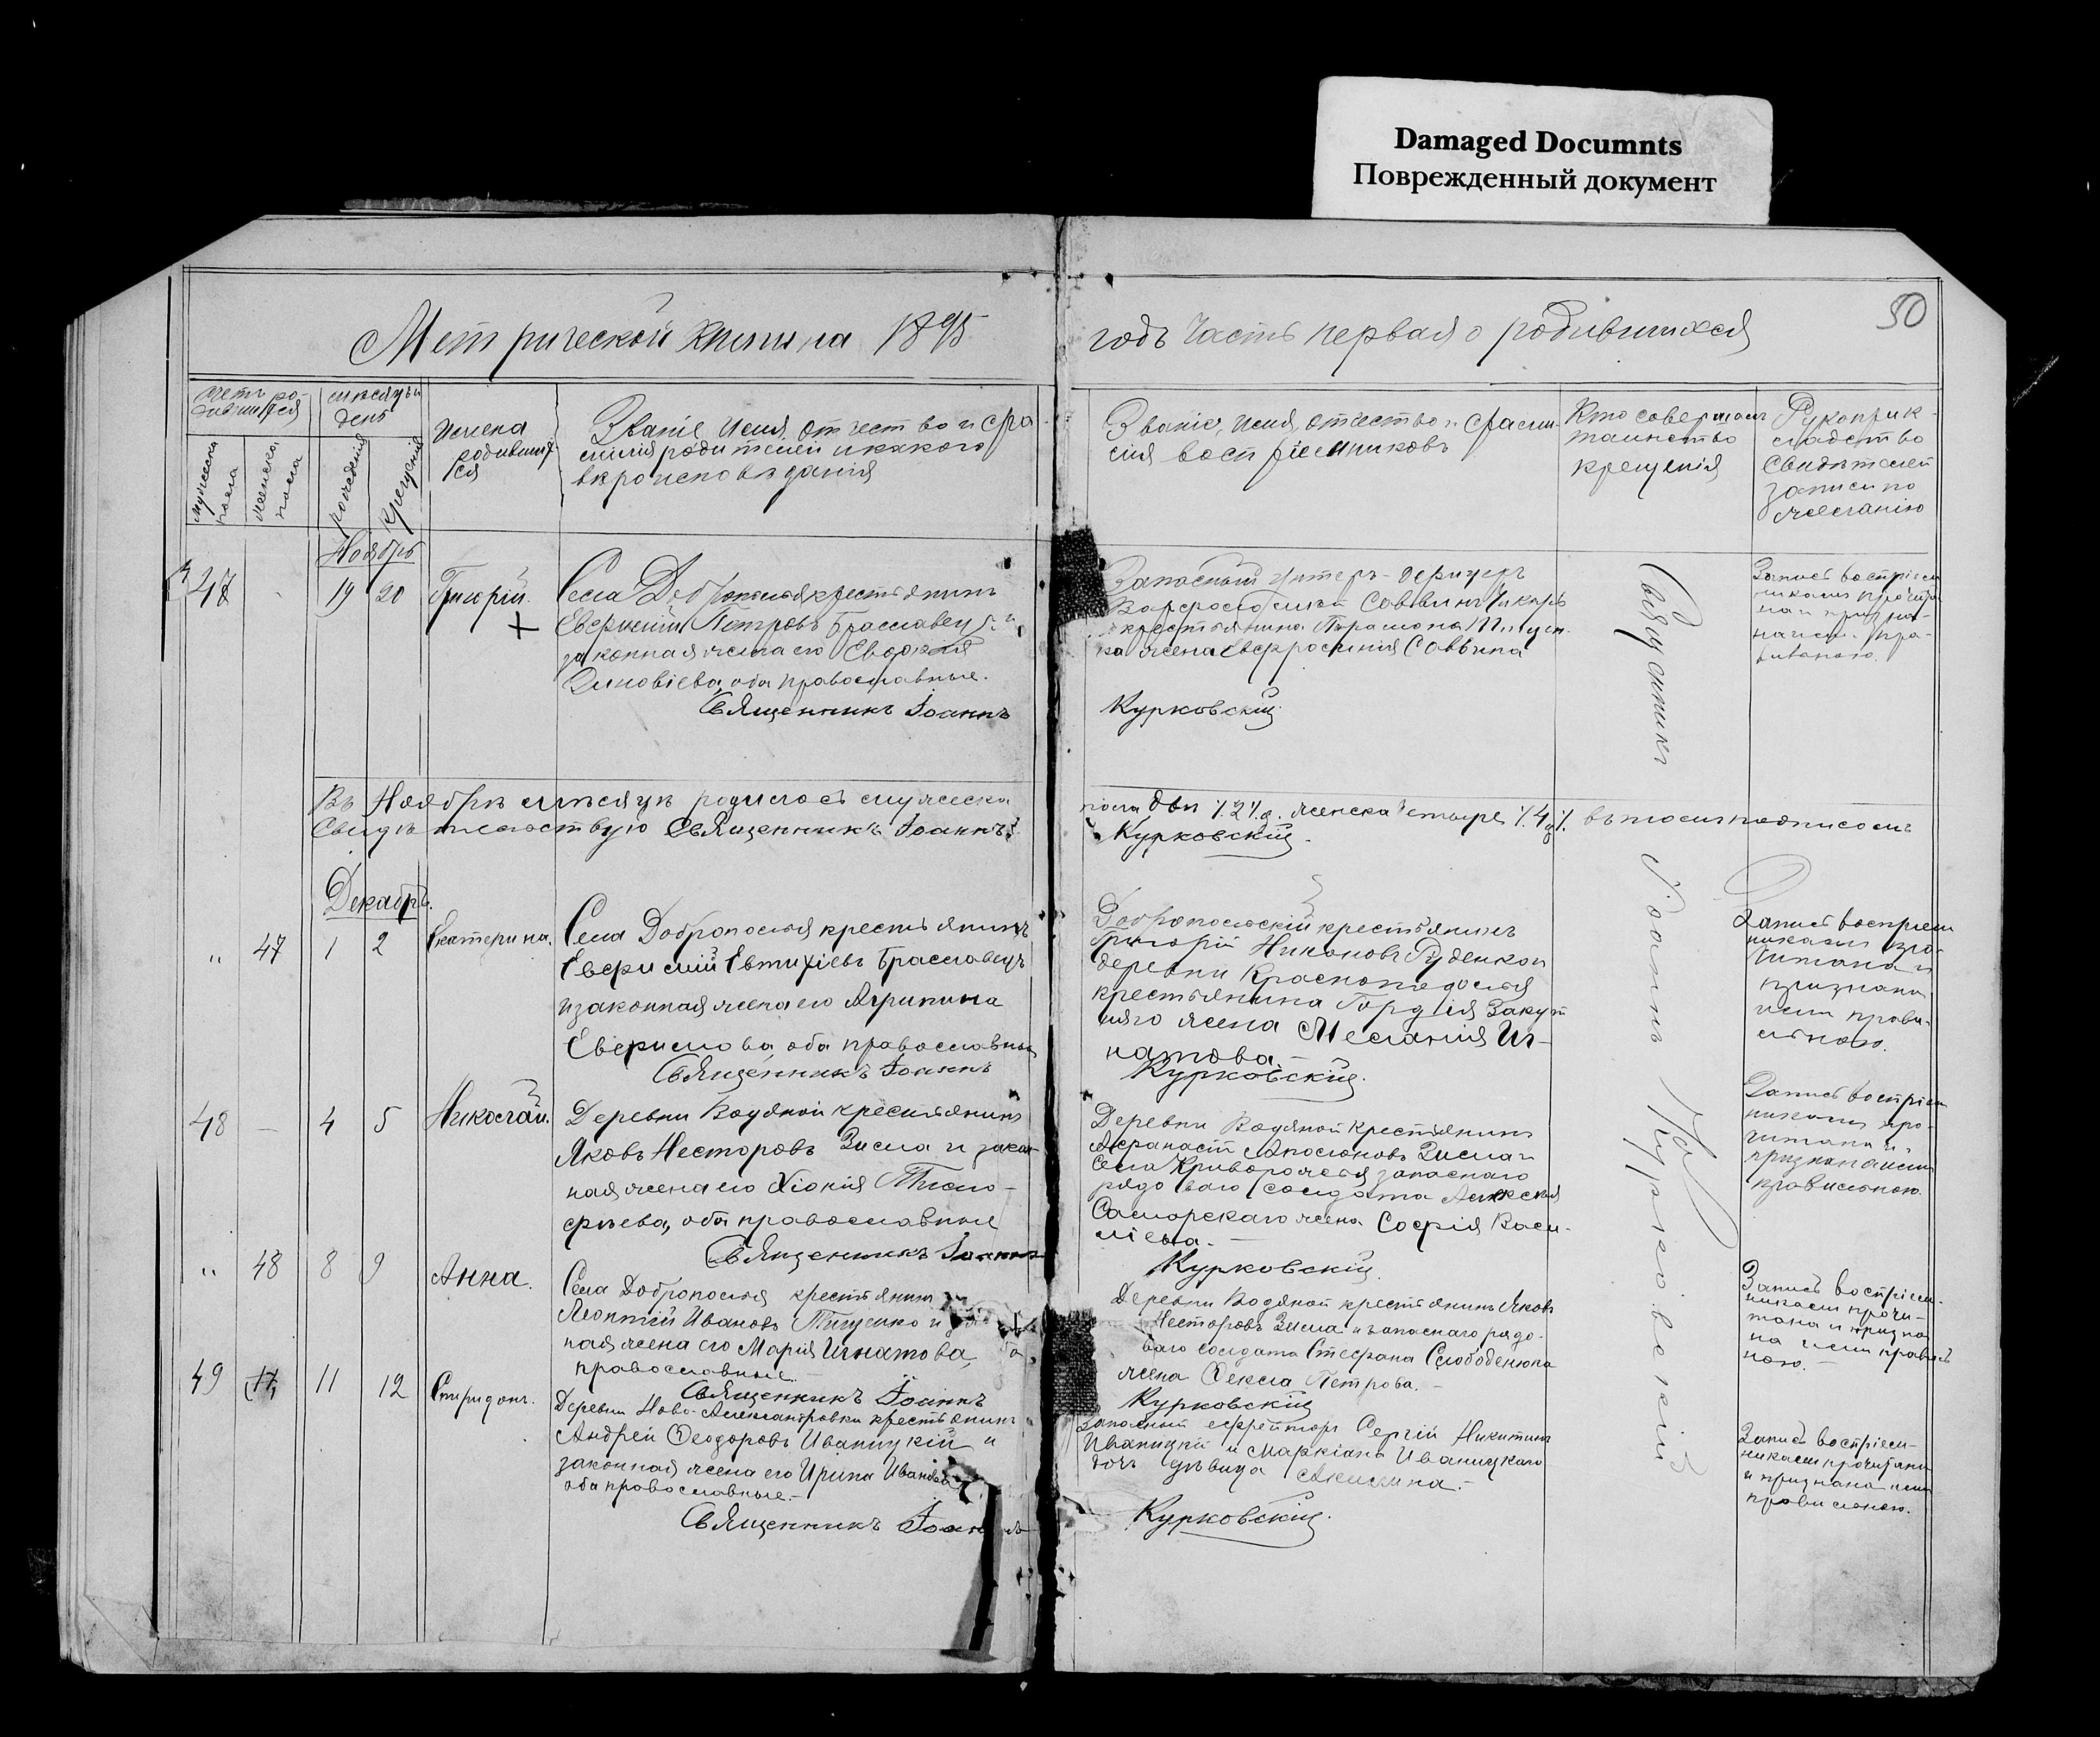 Damaged Documnts
Поврежденный документ
50
Метрической книги на 1895
годъ часть первая о родившихся
Счетъ ро-
дившихся
мѣсяцъ и
день
Имена
родивших
ся
Званіе, имя, отчество и фа-
милія родителей и какого
вѣроисповѣданія
мужеска
пола
женска
пола
рожденія
крещенія
Званіе, имя, отчество и фами-
лія воспріемниковъ
Кто совершалъ
таинство
крещенія
Рукоприк-
ладство
свидѣтелей
записи по
желанію
Ноябрь
47
19 20
Григорій.
Села Доброполья крестьянинъ
Евфимій Петровъ Браславецъ и
законная жена его Евдокія
Зиновіева, оба православные.
Священникъ Іоаннъ
Запасный унтеръ-офицеръ
Саввинъ
крестьянина
жена Евфросинія Саввина
Курковскій
Запись воспріем
никами прочита
на и призна-
на ими пра-
вильною.
Въ Ноябрѣ мѣсяцѣ родилось мужеска
пола два %2%, женска четыре %4% въ томъ подписомъ
Свидѣтельствую Священникъ Іоаннъ
Курковскій.
Декабрь.
" 47 1 2
Екатерина.
Села Доброполья крестьянинъ
Евфимій Евтихіевъ Браславецъ
и законная жена его Агрипина
Евфимова, оба православные
Священникъ Іоаннъ
Добропольскій крестьянинъ
Григорій Никоновъ Руденко и
деревни
крестьянина Гордія
жена Меланія Иг-
натова.
Курковскій.
Запись воспріем
никами про-
читана и
признана
ими прави-
льною.
48 — 4 5
Николай.
Деревни Водяной крестьянинъ
Яковъ Несторовъ Зима и закон
ная жена его Хіонія Тимо-
фѣева, оба православные
Священникъ Іоаннъ
Деревни Водяной крестьянинъ
Афанасій Зима и
села Криворожья запаснаго
рядоваго солдата Алексѣя
Саморскаго жена Софія Васи-
ліева.
Курковскій.
Запись воспріем
никами про-
читана и
признана ими
правильною.
" 48 8 9
Анна.
Села Доброполья крестьянинъ
Леонтій Ивановъ Тищенко и
ная жена его Марія Игнатова,
православные.
Священникъ Іоаннъ
Деревни Водяной крестьянинъ Яковъ
Несторовъ Зима и запаснаго рядо-
ваго солдата Стефана Слободенюка
жена Ѳекла Петрова.
Курковскій
Запись воспріем-
никами прочи-
тана и призна
на ими правиль
ною.
49 11 12
Спиридонъ.
Деревни Ново-Александровки крестьянинъ
Андрей Ѳеодоровъ Иваницкій и
законная жена его Ирина Иванова
оба православные.
Священникъ Іоаннъ
Запасный ефрейторъ Сергій Никитинъ
Иваницкій и Маркіана Иваницкаго
дочь дѣвица Акилина.
Курковскій.
Запись воспріем-
никами прочитана
и признана ими
правильною.
Священникъ Іоаннъ Курковскій